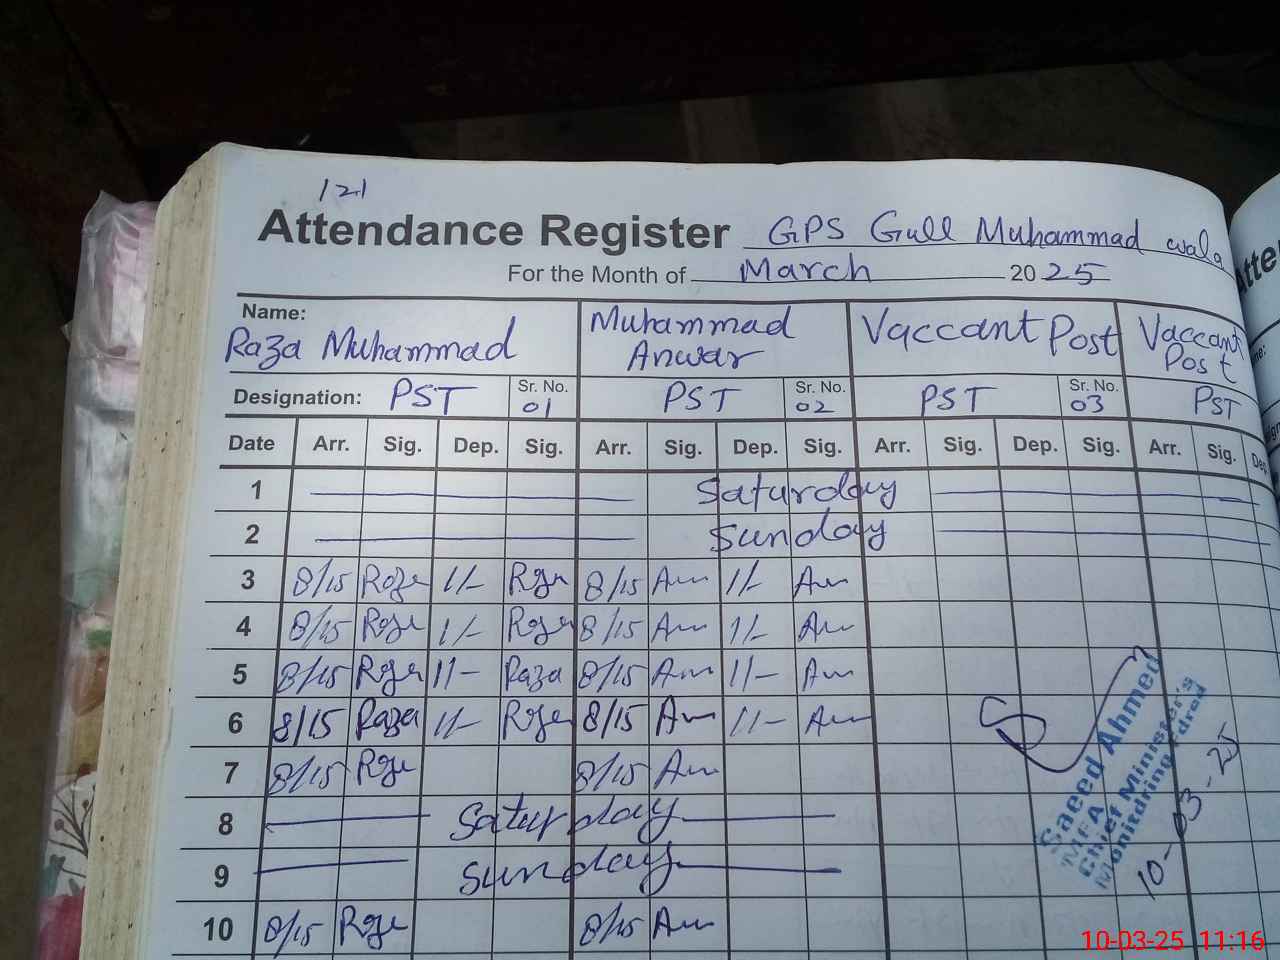 121
Attendance Register GPS Gull Muhammad wala
For the Month of March 2025
Name: Raza Muhammad Muhammad Anwar Vaccant Post Vaccant Post
Designation: PST Sr. No. 01 PST Sr. No. 02 PST Sr. No. 03 PST
Date Arr. Sig. Dep. Sig. Arr. Sig. Dep. Sig. Arr. Sig. Dep. Sig. Arr. Sig. Dep
1 Saturday
2 Sunday
3 8/15 11/- 8/15 11/-
4 8/15 11/- 8/15 11/-
5 8/15 11/- Raza 8/15 11/-
6 8/15 Raza 11/- 8/15 11/-
7 8/15 8/15
8 Saturday
9 Sunday
10 8/15 8/15
Saeed Ahmed
MEA
Chief Minister's
10-03-25
10-03-25 11:16